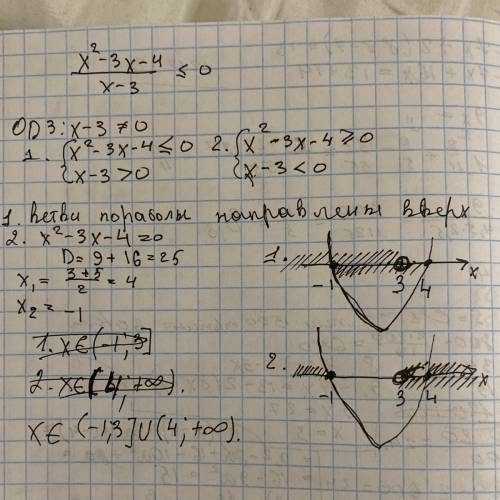 x²-3x-4
x-3
≤ 0
ОДЗ: x-3 ≠ 0
1. {x²-3x-4 ≤ 0
x-3 > 0
2. {x²-3x-4 ≥ 0
x-3 < 0
1. Ветви пораболы направлены вверх
2. x²-3x-4=0
D= 9+16=25
x₁= (3+5)/2 = 4
x₂= -1
1. x∈(-1;3]
2. x∈(4;+∞).
x∈ (-1;3]∪(4;+∞).
1.
-1 3 4 x
2.
-1 3 4 x